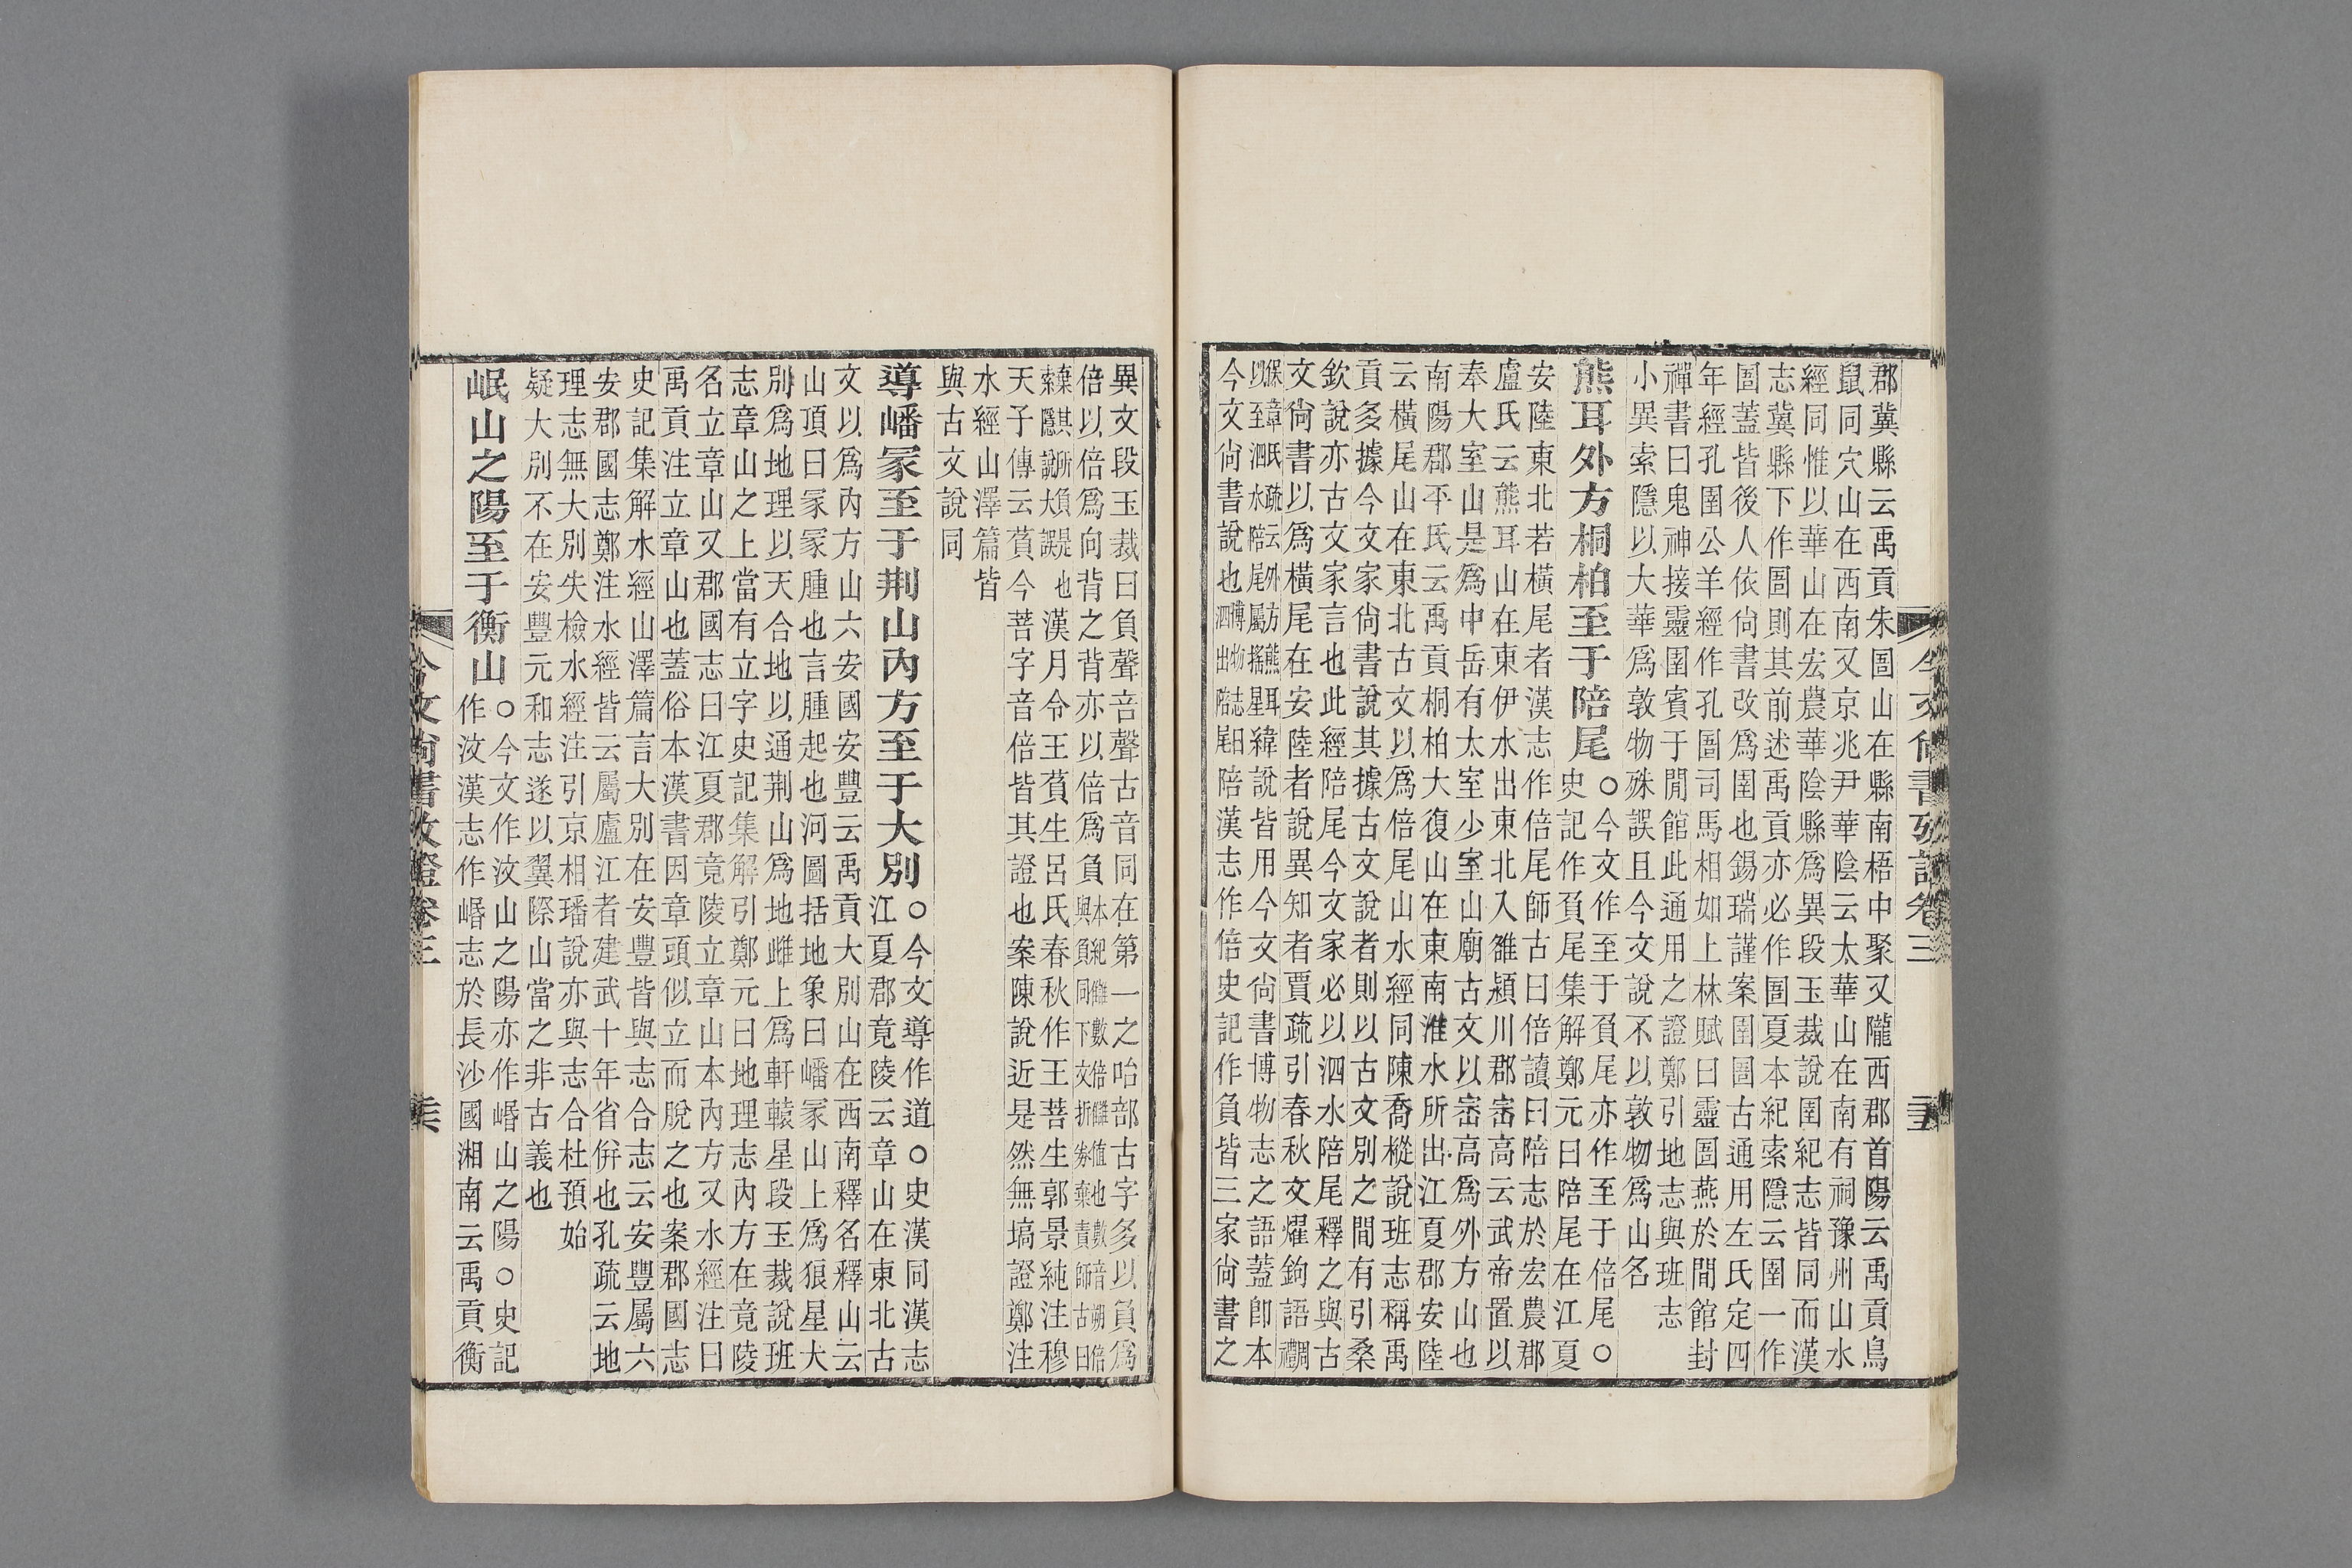 郡冀縣云禹貢朱圄山在縣南梧中聚又隴西郡首陽云禹貢鳥
鼠同穴山在西南又京兆尹華陰云太華山在南有祠豫州山水
經同惟以華山在宏農華陰縣爲異段玉裁說圉紀志皆同而漢
志冀縣下作圄則其前述禹貢亦必作圄夏本紀索隱云圉一作
圄蓋皆後人依尙書改爲圉也錫瑞謹案圉圄古通用左氏定四
年經孔圉公羊經作孔圄司馬相如上林賦曰靈圄燕於閒館封
禪書曰鬼神接靈圉賓于閒館此通用之證鄭引地志與班志
小異索隱以大華爲敦物殊誤且今文說不以敦物爲山名
熊耳外方桐柏至于陪尾○今文作至于負尾亦作至于倍尾○
史記作負尾集解鄭元曰陪尾在江夏
安陸東北若橫尾者漢志作倍尾師古曰倍讀曰陪志於宏農郡
盧氏云熊耳山在東伊水出東北入雒潁川郡崈高云武帝置以
奉大室山是爲中岳有太室少室山廟古文以崈高爲外方山也
南陽郡平氏云禹貢桐柏大復山在東南淮水所出江夏郡安陸
云橫尾山在東北古文以爲倍尾山水經同陳喬樅說班志稱禹
貢多據今文家尙書說其據古文說者則以古文別之間有引桑
欽說亦古文家言也此經陪尾今文家必以泗水陪尾釋之與古
文尙書以爲橫尾在安陸者說異知者賈疏引春秋文燿鉤語周禮
保章氏疏云外方熊耳
以至泗水陪尾屬搖星緯說皆用今文尙書博物志之語蓋卽本
今文尙書說也博物志曰泗出陪尾陪漢志作倍史記作負皆三家尙書之
今文尙書攷證卷三
異文段玉裁曰負聲咅聲古音同在第一之咍部古字多以負爲
倍以倍爲向背之背亦以倍爲負本紀雖數倍與負同下文折券棄責師古曰
棄其所負是也
索隱說大誤漢月令王萯生呂氏春秋作王菩生郭景純注穆
天子傳云萯今菩字音倍皆其證也案陳說近是然無塙證鄭注
水經山澤篇皆
與古文說同
導嶓冢至于荆山內方至于大別○今文導作道○史漢同漢志
江夏郡竟陵云章山在東北古
文以爲內方山六安國安豐云禹貢大別山在西南釋名釋山云
山頂曰冢冢腫也言腫起也河圖括地象曰嶓冢山上爲狼星大
別爲地理以天合地以通荆山爲地雌上爲軒轅星段玉裁說班
志章山之上當有立字史記集解引鄭元曰地理志內方在竟陵
名立章山又郡國志曰江夏郡竟陵立章山本內方又水經注曰
禹貢注立章山也蓋俗本漢書因章頭似立而脫之也案郡國志
史記集解水經山澤篇言大別在安豐皆與志合志云安豐屬六
安郡國志鄭注水經皆云屬廬江者建武十年省倂也孔疏云地
理志無大別失檢水經注引京相璠說亦與志合杜預始
疑大別不在安豐元和志遂以翼際山當之非古義也
岷山之陽至于衡山○今文作汶山之陽亦作崏山之陽○史記
作汶漢志作崏志於長沙國湘南云禹貢衡
今文尙書攷證卷三